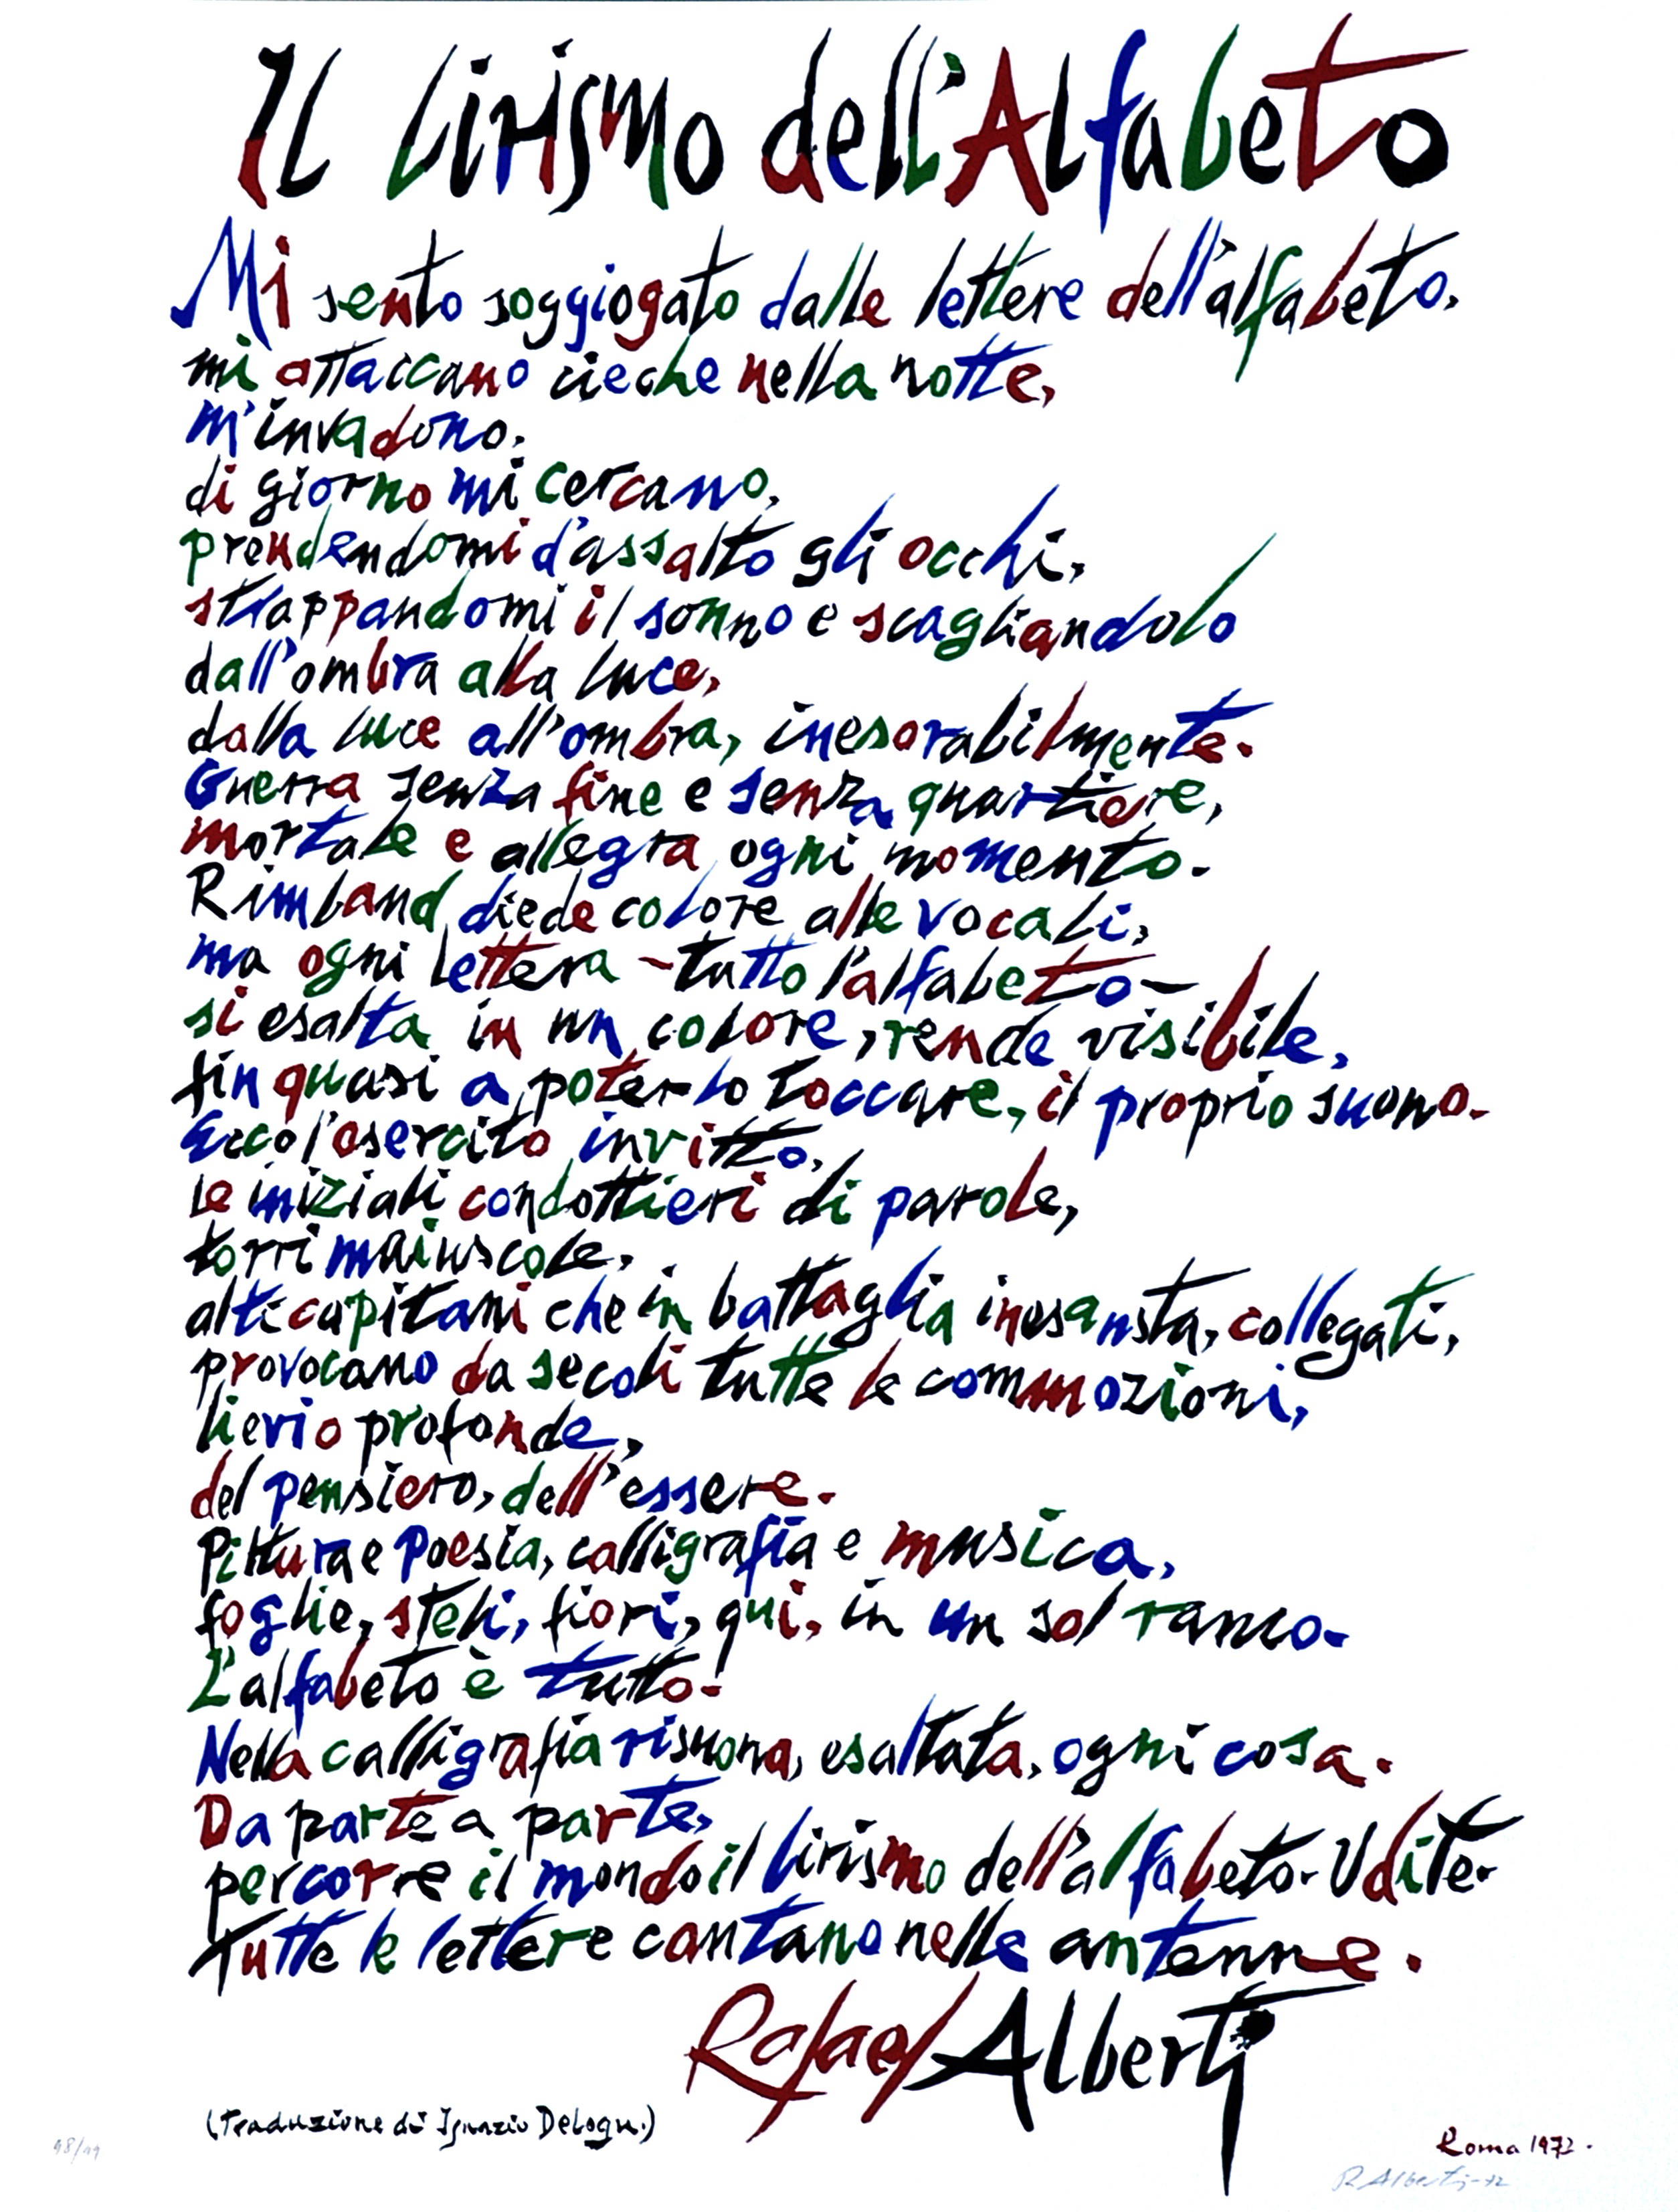 Il lirismo dell'Alfabeto
Mi sento soggiogato dalle lettere dell'alfabeto.
mi attaccano cieche nella notte,
m'invadono.
di giorno mi cercano,
prendendomi d'assalto gli occhi,
strappandomi il sonno e scagliandolo
dall'ombra alla luce,
dalla luce all'ombra, inesorabilmente.
Guerra senza fine e senza quartiere,
mortale e allegra ogni momento.
Rimbaud diede colore alle vocali,
ma ogni lettera - tutto l'alfabeto -
si esalta in un colore, rende visibile,
fin quasi a poterlo toccare, il proprio suono.
Ecco l'esercito invitto,
le iniziali condottieri di parole,
torri maiuscole,
alti capitani che in battaglia inesausta, collegati,
provocano da secoli tutte le commozioni,
lievi o profonde,
del pensiero, dell'essere.
Pittura e Poesia, calligrafia e musica,
foglie, steli, fiori, qui, in un sol ramo.
L'alfabeto è tutto.
Nella calligrafia risuona, esaltata, ogni cosa.
Da parte a parte,
percorre il mondo il lirismo dell'alfabeto. Udite.
Tutte le lettere cantano nelle antenne.
Rafael Alberti
(Traduzione di Ignazio Delogu.)
98/99
Roma 1972.
R. Alberti-72